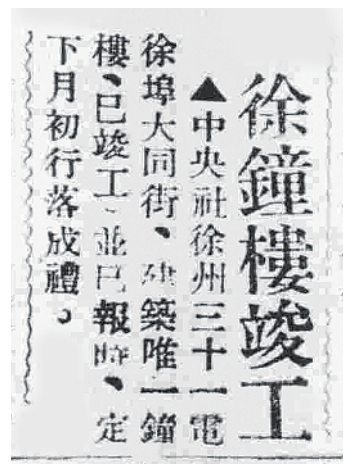 徐鐘樓竣工
▲中央社徐州三十一電
徐埠大同街、建築唯一鐘
樓、已竣工、並已報時、定
下月初行落成禮。